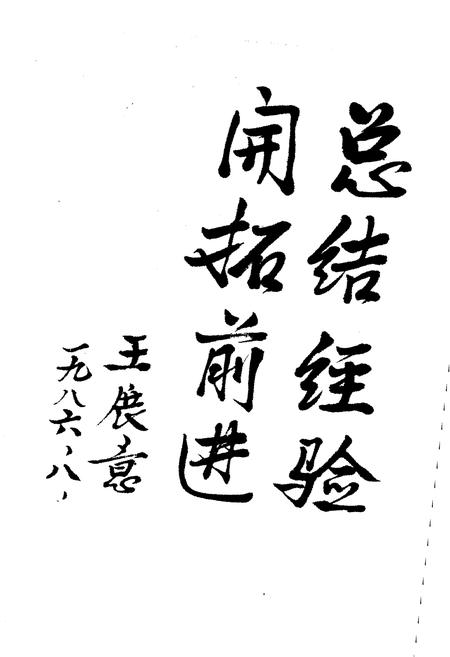 总结经验
开拓前进
王展意
一九八六、八、